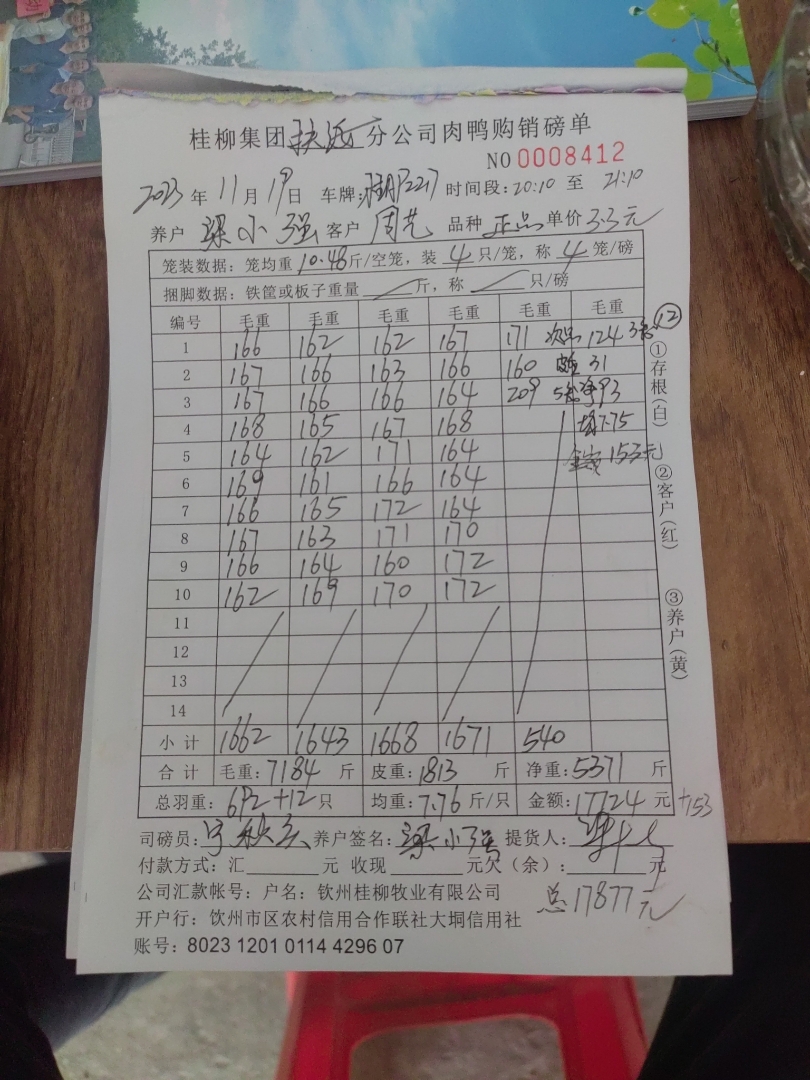 桂柳集团扶绥分公司肉鸭购销磅单
NO 0008412
2023年11月19日 车牌: 时间段:20:10至21:10
养户 梁小强 客户 周艺 品种 正品 单价 3.3元
笼装数据:笼均重10.48斤/空笼,装4只/笼,称4笼/磅
捆脚数据:铁筐或板子重量 斤,称 只/磅
编号 毛重 毛重 毛重 毛重 毛重 毛重
1 166 162 162 167 171 次品 124 ⑫
2 167 166 163 166 160 31
3 167 166 166 164 209 净93
4 168 165 167 168 均7.75
5 164 162 171 164 金额153元
6 169 161 166 164
7 166 165 172 164
8 167 163 171 170
9 166 164 160 172
10 162 169 170 172
11
12
13
14
小计 1662 1643 1668 1671 540
合计 毛重:7184斤 皮重:1813斤 净重:5371斤
总羽重:692+12只 均重:7.76斤/只 金额:17724元 +153
①存根(白)
②客户(红)
③养户(黄)
司磅员: 养户签名:梁小强 提货人:
付款方式:汇 元 收现 元欠(余): 元
公司汇款帐号:户名:钦州桂柳牧业有限公司 总17877元
开户行:钦州市区农村信用合作联社大垌信用社
账号:8023 1201 0114 4296 07